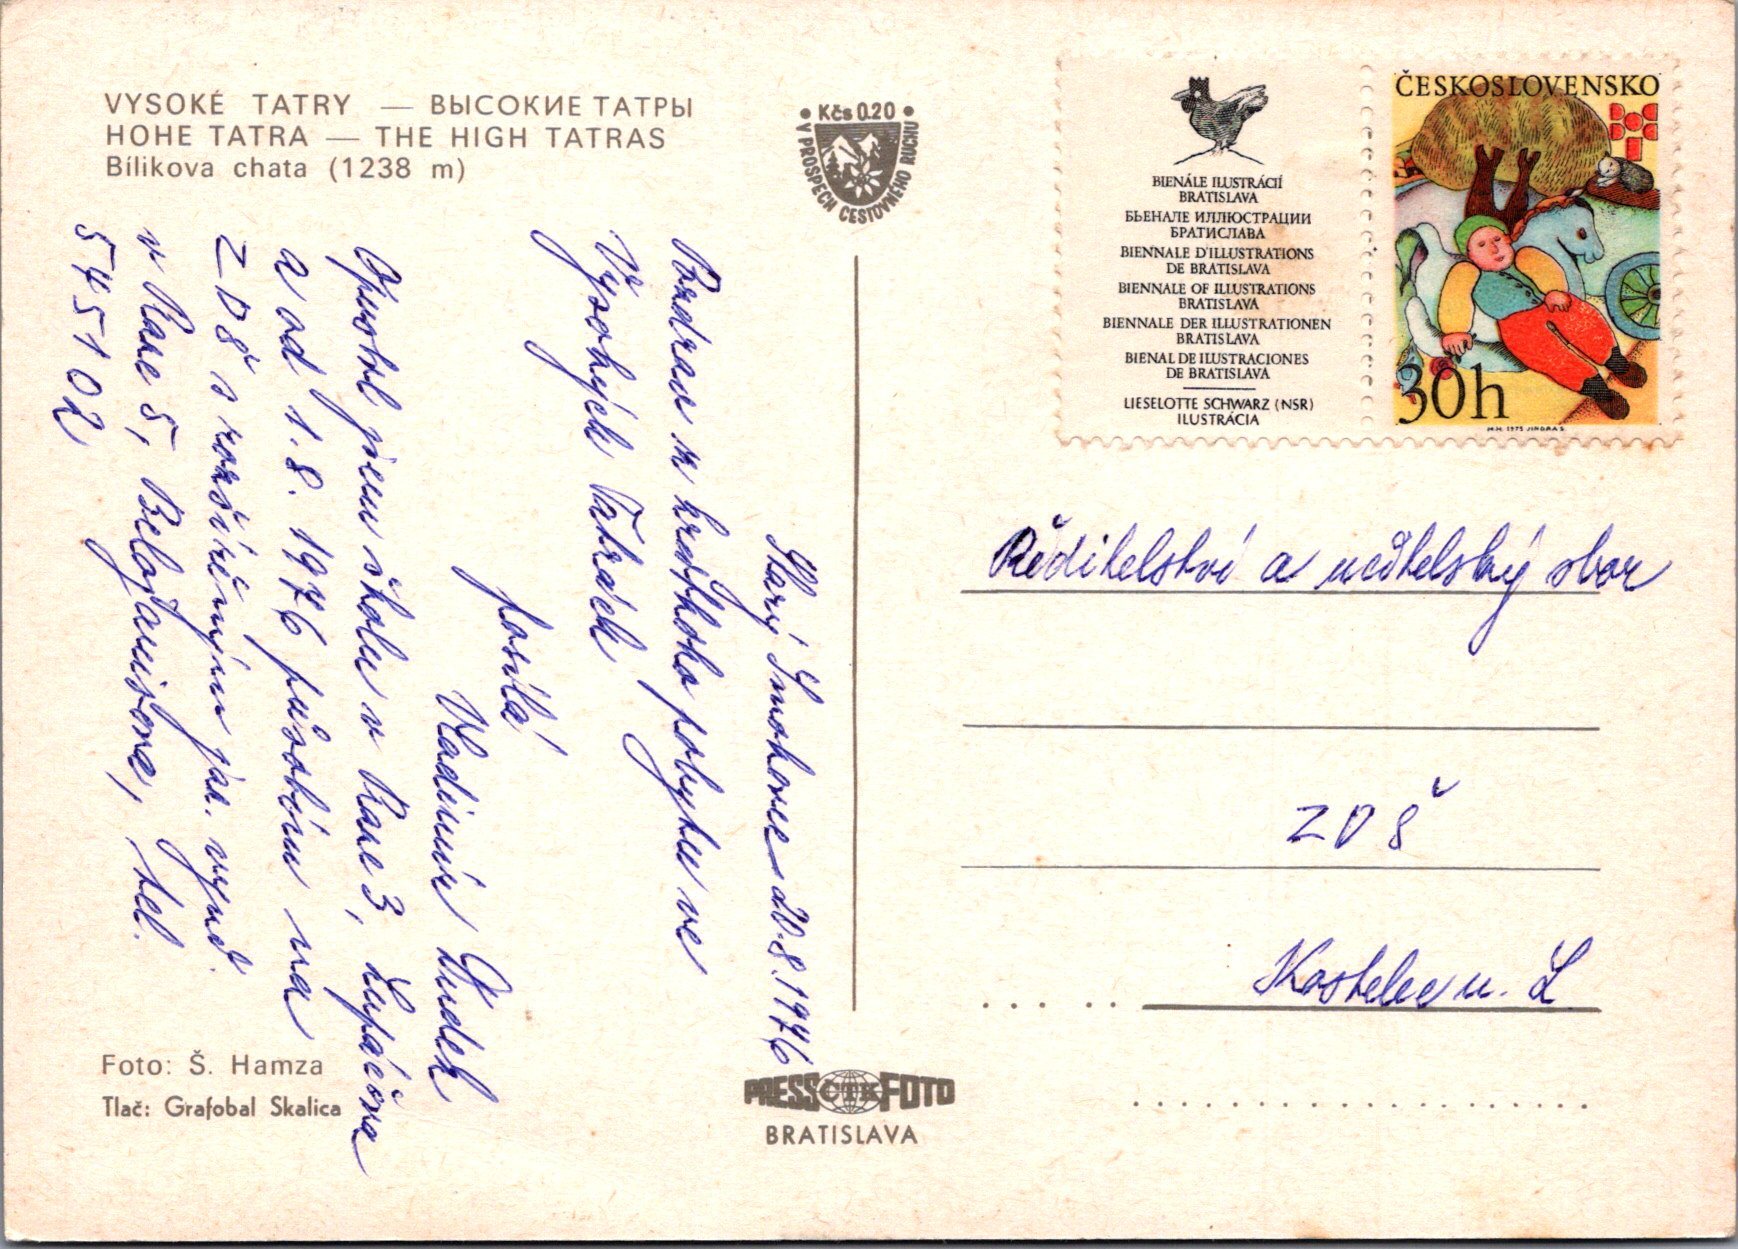 VYSOKÉ TATRY — ВЫСОКИЕ ТАТРЫ
HOHE TATRA — THE HIGH TATRAS
Bílikova chata (1238 m)
• Kčs 0.20 •
V PROSPECH CESTOVNÉHO RUCHU
BIENÁLE ILUSTRÁCIÍ
BRATISLAVA
БЬЕНАЛЕ ИЛЛЮСТРАЦИИ
БРАТИСЛАВА
BIENNALE D'ILLUSTRATIONS
DE BRATISLAVA
BIENNALE OF ILLUSTRATIONS
BRATISLAVA
BIENNALE DER ILLUSTRATIONEN
BRATISLAVA
BIENAL DE ILUSTRACIONES
DE BRATISLAVA
LIESELOTTE SCHWARZ (NSR)
ILUSTRÁCIA
ČESKOSLOVENSKO
30h
M.H. 1975 JINDRA S.
Starý Smokovec 20.8.1976
Pozdrav z krátkého pobytu ve
Vysokých Tatrách
posílá
Vladimír
Opustil jsem školu v Praze 3, Lupáčova
a od 1.8.1976 působím na
ZDŠ s rozšířeným jaz. vyuč.
v Praze 5, Belojanisova, tel.
545102
Ředitelství a učitelský sbor
ZDŠ
Kostelec n. L
Foto: Š. Hamza
Tlač: Grafobal Skalica
PRESS ČTK FOTO
BRATISLAVA